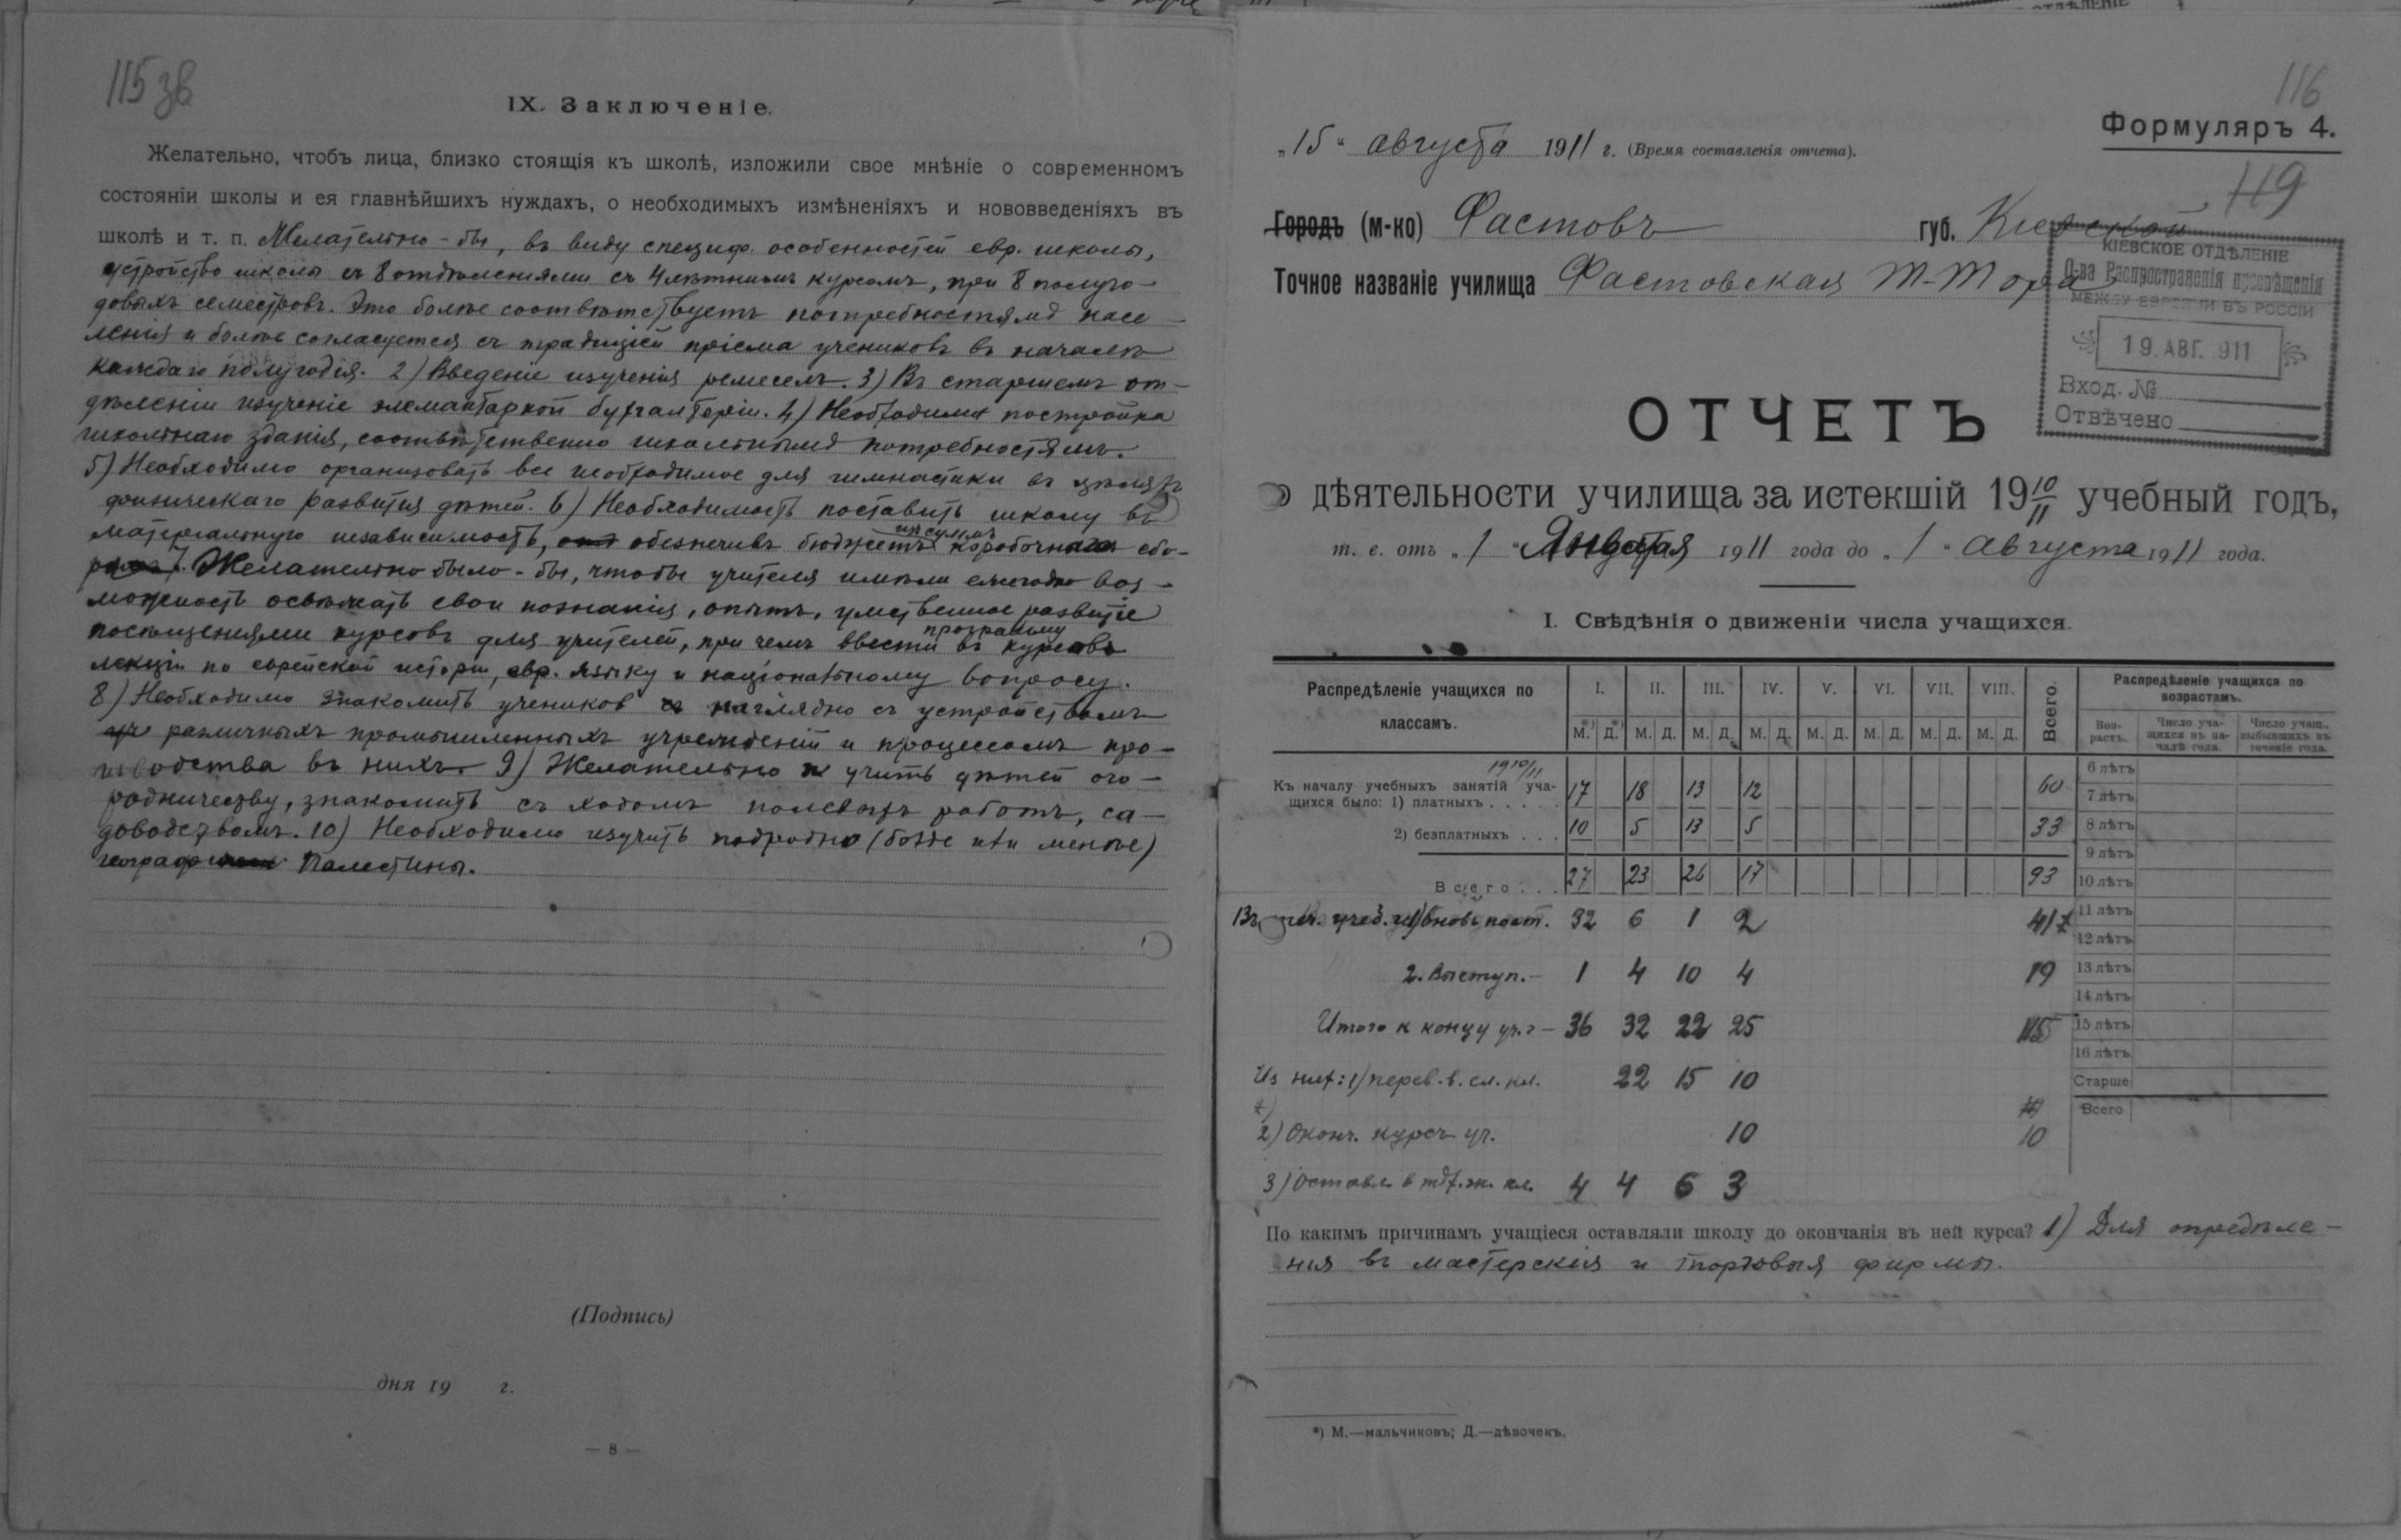 115 зв
IX. Заключеніе.
Желательно, чтобъ лица, близко стоящія къ школѣ, изложили свое мнѣніе о современномъ
состояніи школы и ея главнѣйшихъ нуждахъ, о необходимыхъ измѣненіяхъ и нововведеніяхъ въ
школѣ и т. п. Желательно-бы, въ виду специф. особенностей евр. школы,
устройство школы съ 8 отдѣленіями съ 4 лѣтнимъ курсомъ, при 8 полуго-
довыхъ семестровъ. Это болѣе соотвѣтствуетъ потребностямъ насе-
ленія и болѣе согласуется съ традиціей пріема учениковъ въ началѣ
каждаго полугодія. 2) Введеніе изученія ремеселъ. 3) Въ старшемъ от-
дѣленіи изученіе элемантарной бухгалтеріи. 4) Необходима постройка
школьнаго зданія, соотвѣтственно школьнымъ потребностямъ.
5) Необходимо организовать все необходимое для гимнастики въ цѣляхъ
физическаго развитія дѣтей. 6) Необходимость поставить школу въ
матеріальную независимость, обезпечивъ бюджетъ изъ суммъ коробочнаго сбо-
ра. 7. Желательно было-бы, чтобы учителя имѣли ежегодно воз-
можность освѣжать свои познанія, опытъ, умственное развитіе
посѣщеніями курсовъ для учителей, при чемъ ввести въ программу курсовъ
лекціи по еврейской исторіи, евр. языку и національному вопросу.
8) Необходимо знакомить учеников наглядно съ устройствомъ
различныхъ промышленныхъ учрежденій и процессомъ про-
изводства въ нихъ. 9) Желательно учить дѣтей ого-
родничеству, знакомить съ ходомъ полевыхъ работъ, са-
доводствомъ. 10) Необходимо изучить подробно (болѣе или менѣе)
географ Палестины.
(Подпись)
дня 19 г.
— 8 —
116
Формуляръ 4.
„15“ августа 1911 г. (Время составленія отчета).
119
Городъ (м-ко) Фастовъ губ. Кіевской
Точное названіе училища Фастовская Т-Тора
КІЕВСКОЕ ОТДѢЛЕНІЕ
О-ва Распространенія просвѣщенія
МЕЖДУ ЕВРЕЯМИ ВЪ РОССІИ
19. АВГ. 911
Вход. №
Отвѣчено
ОТЧЕТЪ
о дѣятельности училища за истекшій 1910/11 учебный годъ,
т. е. отъ „1“ Января 1911 года до „1“ Августа 1911 года.
I. Свѣдѣнія о движеніи числа учащихся.
Распредѣленіе учащихся по классамъ. I. II. III. IV. V. VI. VII. VIII. Всего. Распредѣленіе учащихся по возрастамъ.
М.*) Д.*) М. Д. М. Д. М. Д. М. Д. М. Д. М. Д. М. Д. Воз-растъ. Число уча-щихся въ на-чалѣ года. Число учащ., выбывшихъ въ теченіе года.
1910/11
Къ началу учебныхъ занятій уча-
щихся было: 1) платныхъ . . . . . 17 18 13 12 60
2) безплатныхъ . . . 10 5 13 5 33
Всего . . . 27 23 26 17 93
Въ теч. учеб. г. 1) вновь пост. 32 6 1 2 41
2. Выступ. - 1 4 10 4 19
Итого к концу уч. г - 36 32 22 25 115
Из них: 1) перев. в. сл. кл. 22 15 10
2) Оконч. курсъ уч. 10 10
3) Оставл. в той ж. кл. 4 4 6 3
6 лѣтъ
7 лѣтъ
8 лѣтъ
9 лѣтъ
10 лѣтъ
11 лѣтъ
12 лѣтъ
13 лѣтъ
14 лѣтъ
15 лѣтъ
16 лѣтъ
Старше
Всего
По какимъ причинамъ учащіеся оставляли школу до окончанія въ ней курса? 1) Для опредѣле-
нія въ мастерскія и торговыя фирмы.
*) М.—мальчиковъ; Д.—дѣвочекъ.